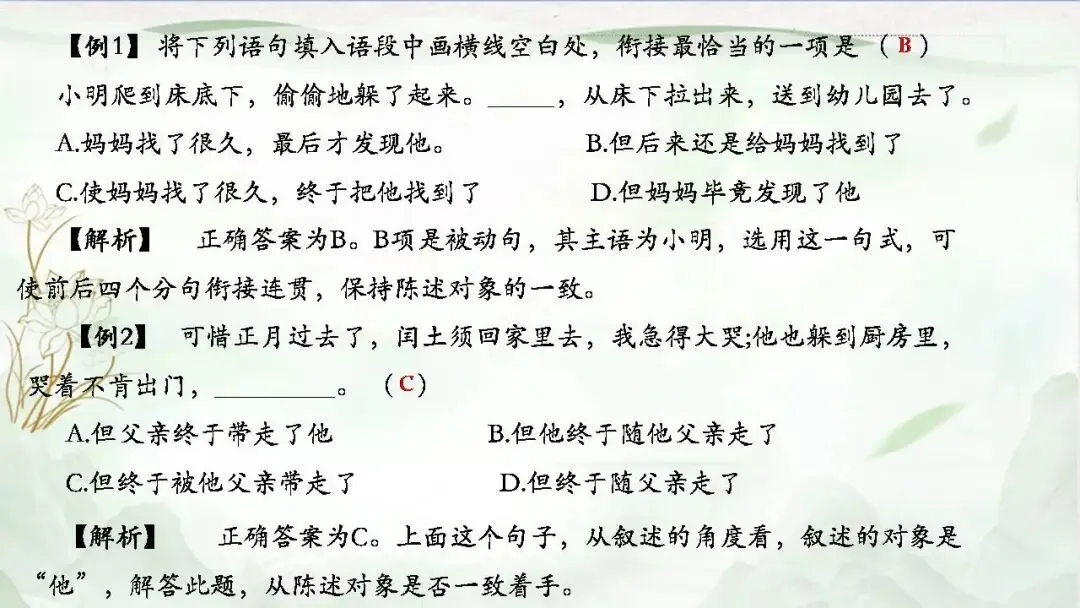 【例1】将下列语句填入语段中画横线空白处，衔接最恰当的一项是（B）
小明爬到床底下，偷偷地躲了起来。_____，从床下拉出来，送到幼儿园去了。
A.妈妈找了很久，最后才发现他。 B.但后来还是给妈妈找到了
C.使妈妈找了很久，终于把他找到了 D.但妈妈毕竟发现了他
【解析】 正确答案为B。B项是被动句，其主语为小明，选用这一句式，可
使前后四个分句衔接连贯，保持陈述对象的一致。
【例2】 可惜正月过去了，闰土须回家里去，我急得大哭;他也躲到厨房里，
哭着不肯出门，_________。（C）
A.但父亲终于带走了他 B.但他终于随他父亲走了
C.但终于被他父亲带走了 D.但终于随父亲走了
【解析】 正确答案为C。上面这个句子，从叙述的角度看，叙述的对象是
“他”，解答此题，从陈述对象是否一致着手。